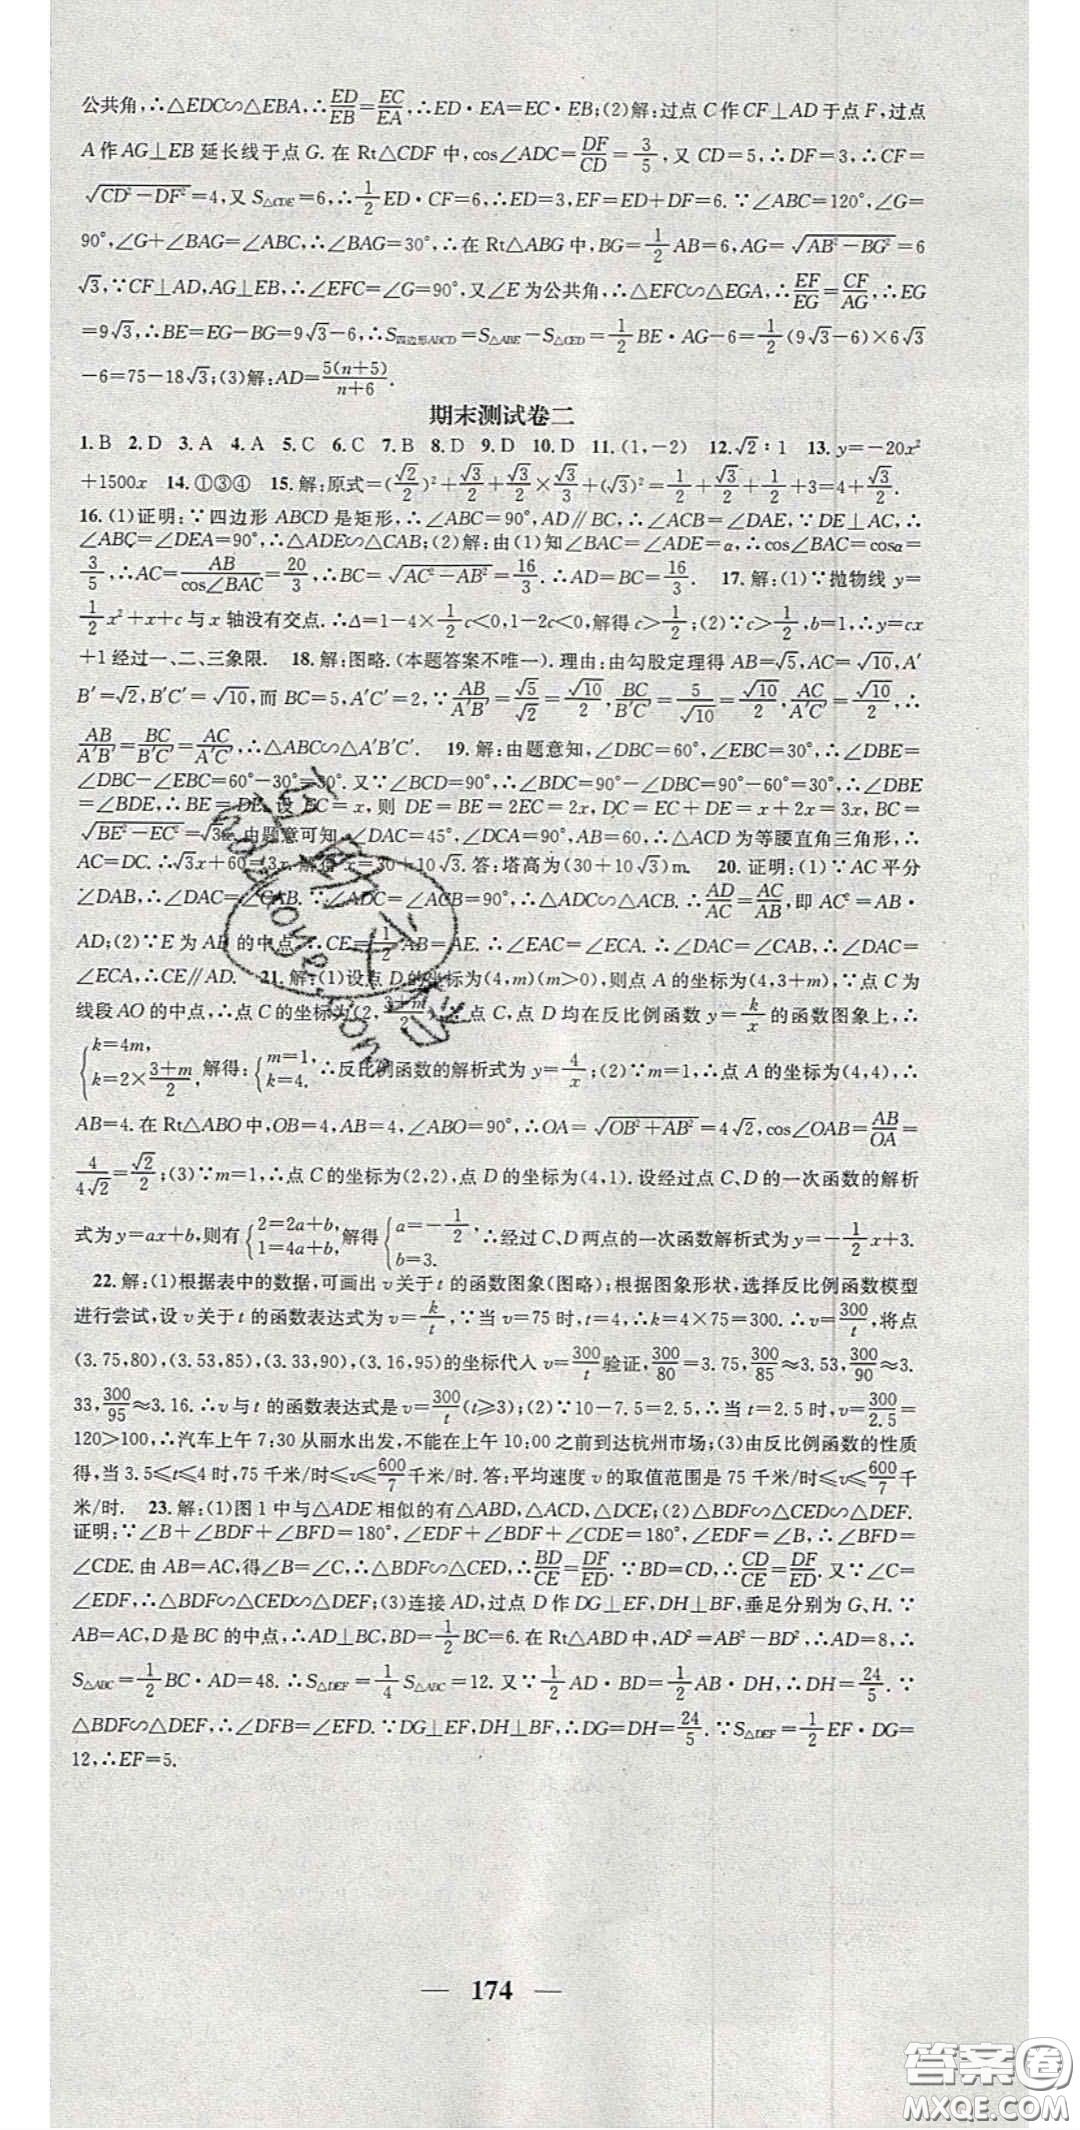 公共角,∴△EDC∽△EBA,∴ED/EB=EC/EA,∴ED·EA=EC·EB;(2)解:过点C作CF⊥AD于点F,过点
A作AG⊥EB延长线于点G.在Rt△CDF中,cos∠ADC=DF/CD=3/5,又CD=5,∴DF=3,∴CF=
√(CD²-DF²)=4,又S△CDE=6,∴1/2ED·CF=6,∴ED=3,EF=ED+DF=6.∵∠ABC=120°,∠G=
90°,∠G+∠BAG=∠ABC,∴∠BAG=30°,∴在Rt△ABG中,BG=1/2AB=6,AG=√(AB²-BG²)=6
√3,∵CF⊥AD,AG⊥EB,∴∠EFC=∠G=90°,又∠E为公共角,∴△EFC∽△EGA,∴EF/EG=CF/AG,∴EG
=9√3,∴BE=EG-BG=9√3-6,∴S四边形ABCD=S△ABE-S△CED=1/2BE·AG-6=1/2(9√3-6)×6√3
-6=75-18√3;(3)解:AD=5(n+5)/(n+6).
期末测试卷二
1.B 2.D 3.A 4.A 5.C 6.C 7.B 8.D 9.D 10.D 11.(1,-2) 12.√2∶1 13.y=-20x²
+1500x 14.①③④ 15.解:原式=(√2/2)²+√3/2+√3/2×√3/3+(√3)²=1/2+√3/2+1/2+3=4+√3/2.
16.(1)证明:∵四边形ABCD是矩形,∴∠ABC=90°,AD∥BC,∴∠ACB=∠DAE,∵DE⊥AC,∴
∠ABC=∠DEA=90°,∴△ADE∽△CAB;(2)解:由(1)知∠BAC=∠ADE=α,∴cos∠BAC=cosα=
3/5,∴AC=AB/cos∠BAC=20/3,∴BC=√(AC²-AB²)=16/3.∴AD=BC=16/3. 17.解:(1)∵抛物线y=
1/2x²+x+c与x轴没有交点.∴Δ=1-4×1/2c<0,1-2c<0,解得c>1/2;(2)∵c>1/2,b=1,∴y=cx
+1经过一、二、三象限. 18.解:图略.(本题答案不唯一).理由:由勾股定理得AB=√5,AC=√10,A′
B′=√2,B′C′=√10,而BC=5,A′C′=2,∵AB/A′B′=√5/√2=√10/2,BC/B′C′=5/√10=√10/2,AC/A′C′=√10/2,∴
AB/A′B′=BC/B′C′=AC/A′C′,∴△ABC∽△A′B′C′. 19.解:由题意知,∠DBC=60°,∠EBC=30°,∴∠DBE=
∠DBC-∠EBC=60°-30°=30°.又∵∠BCD=90°,∴∠BDC=90°-∠DBC=90°-60°=30°,∴∠DBE
=∠BDE,∴BE=DE.设EC=x,则DE=BE=2EC=2x,DC=EC+DE=x+2x=3x,BC=
√(BE²-EC²)=√3x.由题意可知,∠DAC=45°,∠DCA=90°,AB=60,∴△ACD为等腰直角三角形,∴
AC=DC.∴√3x+60=3x.解得x=30+10√3.答:塔高为(30+10√3)m. 20.证明:(1)∵AC平分
∠DAB,∴∠DAC=∠CAB.∵∠ADC=∠ACB=90°,∴△ADC∽△ACB.∴AD/AC=AC/AB,即AC²=AB·
AD;(2)∵E为AB的中点,∴CE=1/2AB=AE.∴∠EAC=∠ECA.∴∠DAC=∠CAB,∴∠DAC=
∠ECA,∴CE∥AD. 21.解:(1)设点D的坐标为(4,m)(m>0),则点A的坐标为(4,3+m),∵点C为
线段AO的中点,∴点C的坐标为(2,(3+m)/2).∵点C,点D均在反比例函数y=k/x的函数图象上,∴
{k=4m, k=2×(3+m)/2 解得:{m=1, k=4. ∴反比例函数的解析式为y=4/x;(2)∵m=1,∴点A的坐标为(4,4),∴
AB=4.在Rt△ABO中,OB=4,AB=4,∠ABO=90°,∴OA=√(OB²+AB²)=4√2,cos∠OAB=AB/OA=
4/4√2=√2/2;(3)∵m=1,∴点C的坐标为(2,2),点D的坐标为(4,1).设经过点C、D的一次函数的解析
式为y=ax+b,则有{2=2a+b, 1=4a+b, 解得{a=-1/2, b=3. ∴经过C、D两点的一次函数解析式为y=-1/2x+3.
22.解:(1)根据表中的数据,可画出v关于t的函数图象(图略);根据图象形状,选择反比例函数模型
进行尝试,设v关于t的函数表达式为v=k/t,∵当v=75时,t=4,∴k=4×75=300.∴v=300/t,将点
(3.75,80),(3.53,85),(3.33,90),(3.16,95)的坐标代入v=300/t验证,300/80=3.75,300/85≈3.53,300/90≈3.
33,300/95≈3.16.∴v与t的函数表达式是v=300/t(t≥3);(2)∵10-7.5=2.5,∴当t=2.5时,v=300/2.5=
120>100,∴汽车上午7:30从丽水出发,不能在上午10:00之前到达杭州市场;(3)由反比例函数的性质
得,当3.5≤t≤4时,75千米/时≤v≤600/7千米/时.答:平均速度v的取值范围是75千米/时≤v≤600/7千
米/时. 23.解:(1)图1中与△ADE相似的有△ABD,△ACD,△DCE;(2)△BDF∽△CED∽△DEF.
证明:∵∠B+∠BDF+∠BFD=180°,∠EDF+∠BDF+∠CDE=180°,∠EDF=∠B,∴∠BFD=
∠CDE.由AB=AC,得∠B=∠C,∴△BDF∽△CED,∴BD/CE=DF/ED.∵BD=CD,∴CD/CE=DF/ED.又∵∠C=
∠EDF,∴△BDF∽△CED∽△DEF;(3)连接AD,过点D作DG⊥EF,DH⊥BF,垂足分别为G、H.∵
AB=AC,D是BC的中点,∴AD⊥BC,BD=1/2BC=6.在Rt△ABD中,AD²=AB²-BD²,∴AD=8,∴
S△ABC=1/2BC·AD=48.∴S△DEF=1/4S△ABC=12.又∵1/2AD·BD=1/2AB·DH,∴DH=24/5.∵
△BDF∽△DEF,∴∠DFB=∠EFD.∵DG⊥EF,DH⊥BF,∴DG=DH=24/5.∵S△DEF=1/2EF·DG=
12,∴EF=5.
— 174 —
答案圈
MXQE.COM